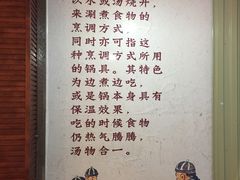 以水或汤烧开，
来涮煮食物的
烹调方式
同时亦可指这
种烹调方式所用
的锅具。其特色
为边煮边吃，
或是锅本身具有
保温效果，
吃的时候食物
仍热气腾腾，
汤物合一。